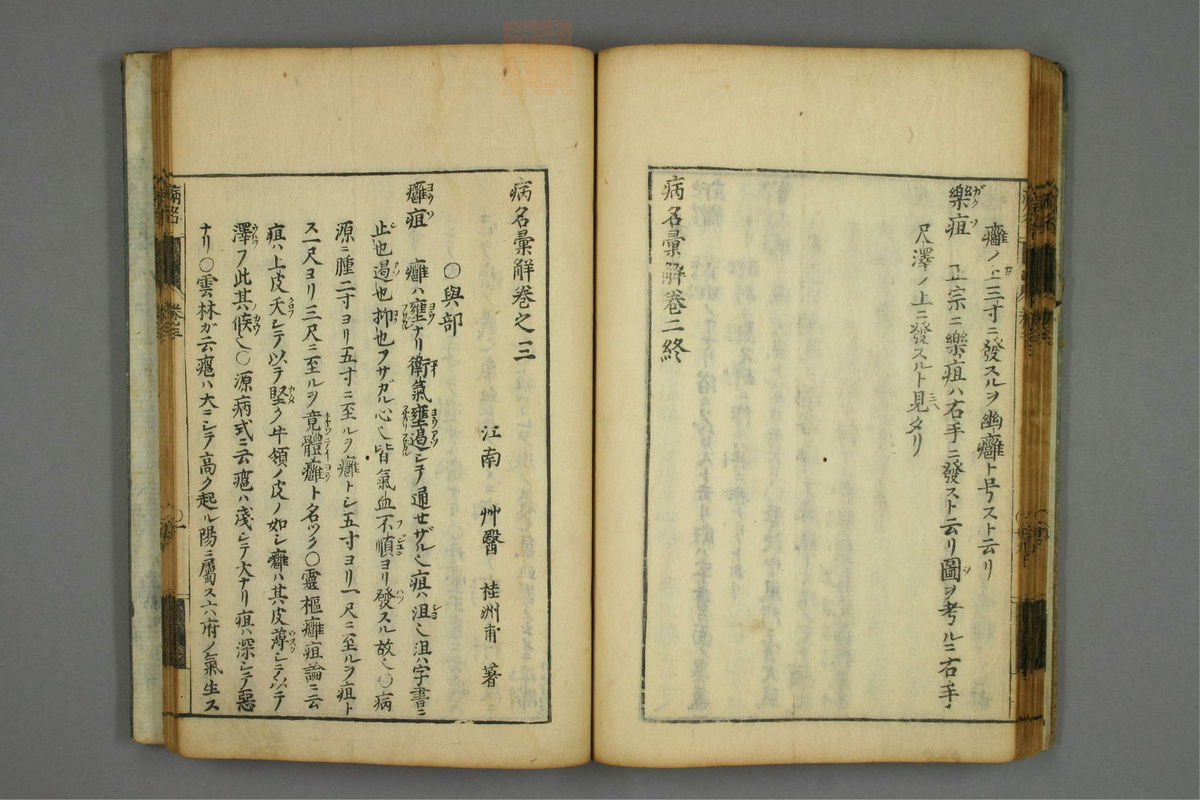 癰ノ上三寸ニ發スルヲ幽癰ト号スト云リ
樂疽 正宗ニ樂疽ハ右手ニ發スト云リ圖ヲ考ルニ右手ノ
尺澤ノ上ニ發スルト見ヘタリ
病名彙解卷二終
病名彙解卷之三
江南 艸醫 桂洲甫 著
○與部
癰疽 癰ハ壅ナリ衛氣壅遏シテ通セザル也疽ハ沮也沮ハ字書ニ
止也遏也抑也フサガル心也皆氣血不順ヨリ發スル故也○病
源ニ腫二寸ヨリ五寸ニ至ルヲ癰トシ五寸ヨリ一尺ニ至ルヲ疽ト
ス一尺ヨリ三尺ニ至ルヲ竟體癰ト名ヅク○靈樞癰疽論ニ云
疽ハ上皮夭シテ以テ堅ク牛領ノ皮ノ如シ癰ハ其皮薄シテ以テ
澤フ此其候也○源病式ニ云癰ハ淺シテ大ナリ疽ハ深シテ惡
ナリ○雲林ガ云癰ハ大ニシテ高ク起ル陽ニ屬ス六府ノ氣生ス
病名
卷之三
○一